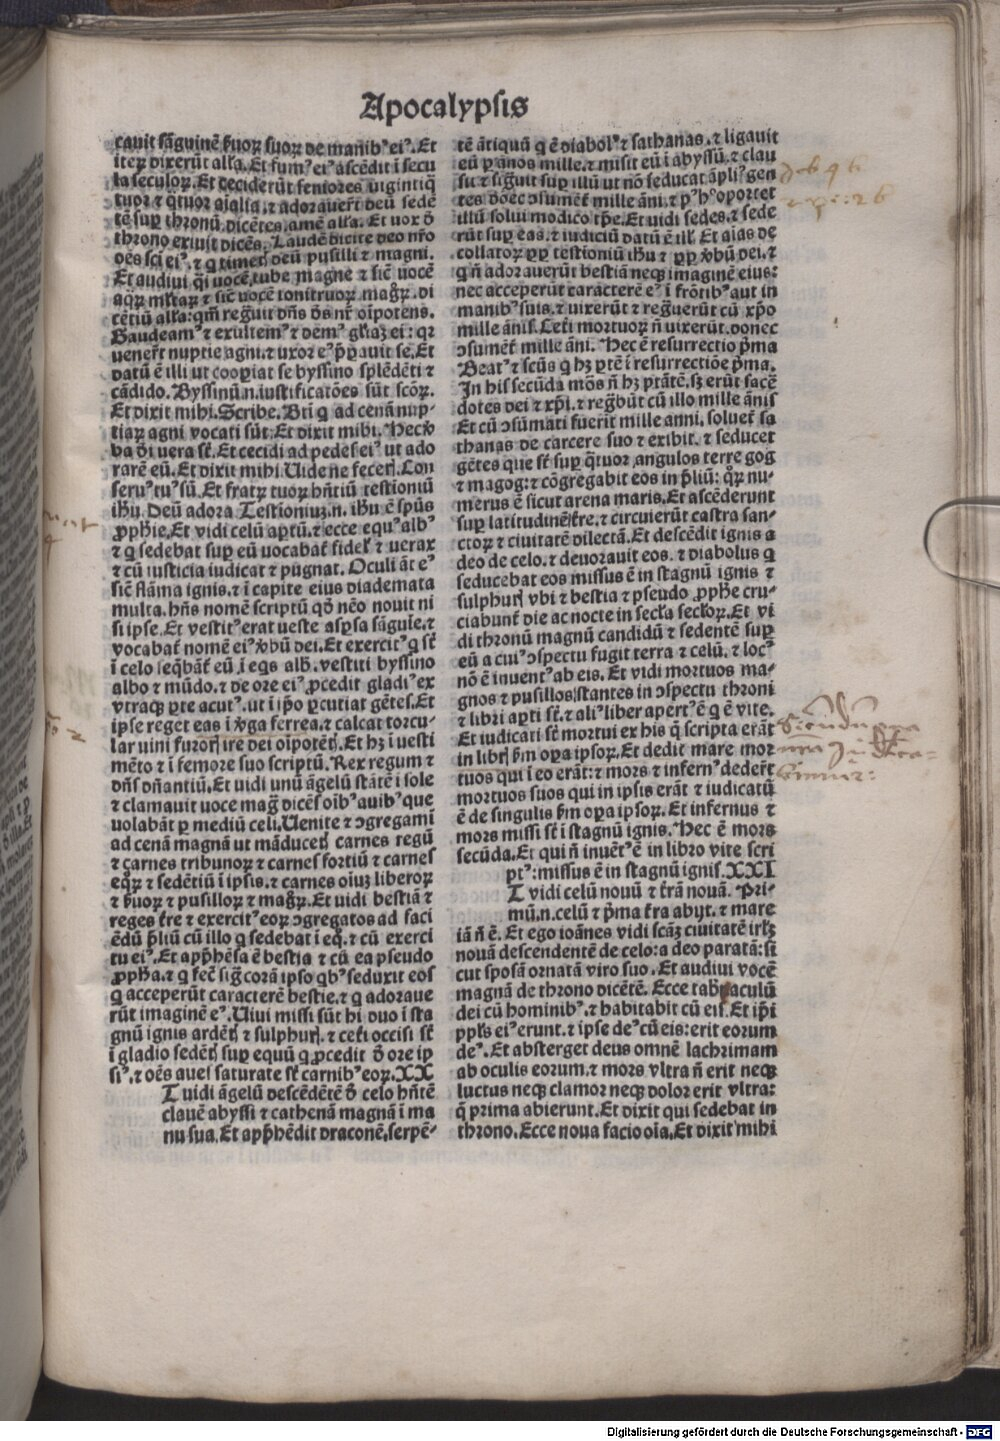 Apocalypsis
cauit sãguinē ẜuoꝝ suoꝝ de manibꝰ eiꝰ. Et
iteꝝ dixerūt alľa. Et fumꝰ eiꝰ ascēdit ī secu
la seculoꝝ. Et ceciderūt seniores uigintiq̃
tuor ⁊ q̃tuor aĩalia. ⁊ adorauerũt deũ sedē
tē suꝑ thronũ. dicētes. amē alľa. Et uox ð
throno exiuit dicēs. Laudē dicite deo nr̃o
oēs sc̃i eiꝰ. ⁊ q timetꝭ deũ pusilli ⁊ magni.
Et audiui q̃si uocē tube magne ⁊ sic̃ uocē
aqꝝ ml̃taꝝ ⁊ sic̃ uocē tonitruoꝝ mag̃ꝝ. di
cētiũ alľa: qm̃ reg̃uit dñs ðs nr̃ oĩpotens.
Gaudeamꝰ ⁊ exultemꝰ ⁊ demꝰ gľiaꝫ ei: qꝛ
uener̃t nuptie agni. ⁊ uxor eꝰ p̃ꝑauit se. Et
datũ ē illi ut cooꝑiat se byssino splēdēti ⁊
cãdido. Byssinũ.n. iustificatōes sũt sc̃oꝝ.
Et dixit mihi. Scribe. Bt̃i q̇ ad cenã nup-
tiaꝝ agni vocati sũt. Et dixit mihi. Hec v̾
ba ði uera st̃. Et cecidi ad pedes eiꝰ ut ado
rarē eũ. Et dixit mihi. Uide ne fecerꝭ. Con
seruꝰ tuꝰ sũ. Et fratꝝ tuoꝝ hñtiũ testioniũ
ihũ. Deũ adora. Testioniuꝫ.n. ihũ ē spũs
ꝓphie. Et vidi celũ aꝑtũ. ⁊ ecce equꝰ albꝰ
⁊ q̇ sedebat suꝑ eũ uocabat̃ fidel̃ ⁊ uerax
⁊ cũ iusticia iudicat ⁊ pugnat. Oculi āt eꝰ
sic̃ flãma ignis. ⁊ ī capite eius diademata
multa. hñs nomē scriptũ qð nēo nouit ni
si ipse. Et vestitꝰ erat ueste asꝑsa sãguīe. ⁊
vocabat̃ nomē eiꝰ v̾bũ dei. Et exercitꝰ q̇ st̃
ī celo seq̃bãt̃ eũ ī eqs albꝭ. vestiti byssino
albo ⁊ mũdo. ⁊ de ore eiꝰ ꝓcedit gladiꝰ ex
vtraqꝫ ꝑte acutꝰ. ut ī ip̃o ꝑcutiat gētes. Et
ipse reget eas ī v̾ga ferrea. ⁊ calcat torcu-
lar uini furorꝭ ire dei oĩpotētꝭ. Et hꝫ ī uesti
mēto ⁊ ī femore suo scriptũ. Rex regum ⁊
dñs dñantiũ. Et uidi unũ ãgelũ stãtē ī sole
⁊ clamauit uoce mag̃ dicēs oĩbꝰ auibꝰ que
uolabãt ꝑ mediũ celi. Uenite ⁊ ꝯgregamĩ
ad cenã magnã ut mãducetꝭ carnes regũ
⁊ carnes tribunoꝝ ⁊ carnes fortiũ ⁊ carnes
eqꝝ ⁊ sedētiũ ī ipsis. ⁊ carnes oĩuꝫ liberoꝝ
⁊ ẜuoꝝ ⁊ pusilloꝝ ⁊ mag̃ꝝ. Et uidi bestiã ⁊
reges t̾re ⁊ exercitꝰ eoꝝ ꝯgregatos ad faci
ēdũ p̃liũ cũ illo q̇ sedebat ī eq̊. ⁊ cũ exerci
tu eiꝰ. Et app̃hēsa ē bestia ⁊ cũ ea pseudo
ꝓpħa. ⁊ q̇ fec̃ sig̃ corã ipso qbꝰ seduxit eos
q̇ acceperũt caracterē bestie. ⁊ q̇ adoraue
rũt imaginē eꝰ. Uiui missi sũt hi duo ī sta
gnũ ignis ardētꝭ ⁊ sulphurꝭ. ⁊ cet̾i occisi st̃
ī gladio sedētꝭ suꝑ equũ q̇ ꝓcedit ð ore ip
siꝰ. ⁊ oēs aues saturate st̃ carnibꝰ eoꝝ. XX
T uidi ãgelũ descēdētē ð celo hñtē
clauē abyssi ⁊ cathenã magnã ī ma
nu sua. Et app̃hēdit draconē. serpē-
tē ãtiquũ q̇ ē diabolꝰ ⁊ sathanas. ⁊ ligauit
eũ ꝑ ãnos mille. ⁊ misit eũ ī abyssũ. ⁊ clau
sit ⁊ sig̃uit suꝑ illũ ut nõ seducat ãpliꝰ gen
tes donec ꝯsumēt̃ mille ãni. ⁊ pꝰ hᵒ oportet
illũ solui modico tp̃e. Et uidi sedes. ⁊ sede
rũt suꝑ eas. ⁊ iudiciũ datũ ē ill̃. Et aĩas de
collatoꝝ ꝓp̃ testioniũ ihu ⁊ ꝓp̃ v̾bũ dei. ⁊
q̇ ñ adorauerũt bestiã neqꝫ imaginē eius:
nec acceperũt caracterē eꝰ ī frõtibꝰ aut in
manibꝰ suis. ⁊ uixerũt ⁊ reg̃uerũt cũ xp̃o
mille ãnis. Cet̾i mortuoꝝ ñ uixerũt. donec
ꝯsumēt̃ mille ãni. Hec ē resurrectio p̃ma
Beatꝰ ⁊ sc̃us q̇ hꝫ ꝑtē ī resurrectiõe p̃ma.
In his secũda mõs ñ hꝫ ptãtē. sꝫ erũt sacē
dotes dei ⁊ xp̃i. ⁊ reg̃bũt cũ illo mille ãnis
Et cũ ꝯsũmati fuerĩt mille anni. soluet̃ sa
thanas de carcere suo ⁊ exibit. ⁊ seducet
gētes que st̃ suꝑ q̃tuor angulos terre gog
⁊ magog: ⁊ cõgregabit eos in p̃liũ: qꝝ nu-
merus ē sicut arena maris. Et ascēderunt
suꝑ latitudinē t̾re. ⁊ circuierũt castra san-
ctoꝝ ⁊ ciuitatē dilectã. Et descēdit ignis a
deo de celo. ⁊ deuorauit eos. ⁊ diabolus q̇
seducebat eos missus ē in stagnũ ignis ⁊
sulphurꝭ vbi ⁊ bestia ⁊ pseudo ꝓphe cru-
ciabunt̃ die ac nocte in secľa secľoꝝ. Et vi
di thronũ magnũ candidũ ⁊ sedentē suꝑ
eũ a cuiꝰ ꝯspectu fugit terra ⁊ celũ. ⁊ locꝰ
nõ ē inuentꝰ ab eis. Et vidi mortuos ma-
gnos ⁊ pusillos stantes in ꝯspectu throni
⁊ libri aꝑti st̃. ⁊ aliꝰ liber apertꝰ ē q̇ ē vite.
Et iudicati st̃ mortui ex his q̃ scripta erãt
in librꝭ ẜm oꝑa ipsoꝝ. Et dedit mare mor
tuos qui ī eo erãt: ⁊ mors ⁊ infernꝰ deder̃t
mortuos suos qui in ipsis erãt ⁊ iudicatũ
ē de singulis ẜm opa ipsoꝝ. Et infernus ⁊
mors missi st̃ ī stagnũ ignis. Hec ē mors
secũda. Et qui ñ inuētꝰ ē in libro vite scri
ptꝰ: missus ē in stagnũ ignis. XXI
T vidi celũ nouũ ⁊ t̾rã nouã. Pri-
mũ.n. celũ ⁊ p̃ma t̾ra abijt. ⁊ mare
iã ñ ē. Et ego ioãnes vidi scãꝫ ciuitatē irl̃ꝫ
nouã descendentē de celo: a deo paratã: si
cut sposã ornatã viro suo. Et audiui vocē
magnã de throno dicētē. Ecce tab̾naculũ
dei cũ hominibꝰ. ⁊ habitabit cũ eis. Et ip̃i
ppl̃s eiꝰ erunt. ⁊ ipse deꝰ cũ eis: erit eorum
deꝰ. Et absterget deus omnē lachrimam
ab oculis eorum. ⁊ mors vltra ñ erit neqꝫ
luctus neqꝫ clamor neqꝫ dolor erit vltra:
q̃ prima abierunt. Et dixit qui sedebat in
throno. Ecce noua facio oĩa. Et dixit mihi
Digitalisierung gefördert durch die Deutsche Forschungsgemeinschaft - DFG